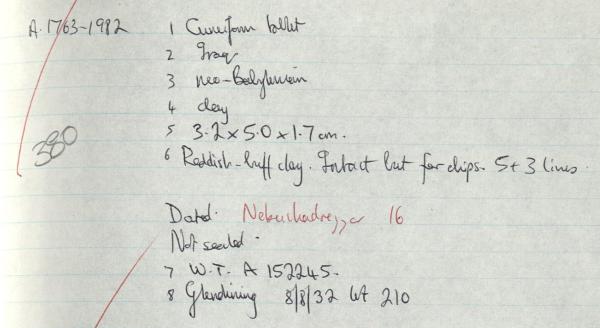 A.1763-1982 1 Cuneiform tablet
2 Iraq
3 neo-Babylonian
4 clay
380
5 3.2 x 5.0 x 1.7 cm.
6 Reddish-buff clay. Intact but for chips. 5+3 lines.
Dated. Nebuchadrezzar 16
Not sealed.
7 W.T. A 152245.
8 Glendining 8/8/32 lot 210